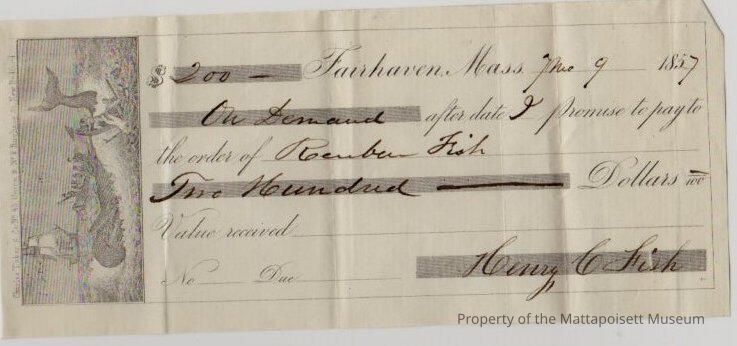 $ 200 — Fairhaven, Mass. 9 1857
On Demand after date I promise to pay to
the order of Reuben Fish
Two Hundred — Dollars
Value received
No Due
Henry C Fish
Property of the Mattapoisett Museum